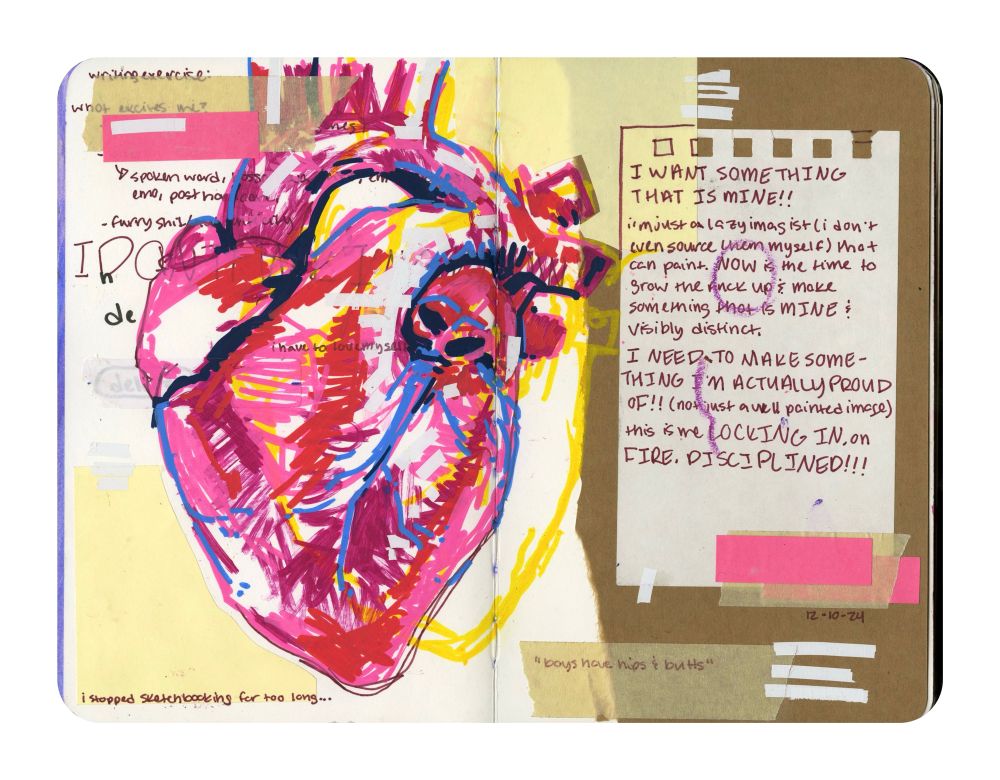 writing exercise:
what excites me?
spoken word,
emo, post
- furry
I
h
de
i have to love myself
i stopped sketchbooking for too long...
I WANT SOMETHING
THAT IS MINE!!
i'm just a lazy imagist (i don't
even source them myself) that
can paint. NOW is the time to
grow the fuck up & make
something that is MINE &
visibly distinct.
I NEED TO MAKE SOME-
THING I'M ACTUALLY PROUD
OF!! (not just a well painted image)
this is me LOCKING IN. on
FIRE. DISCIPLINED!!!
12-10-24
"boys have hips & butts"